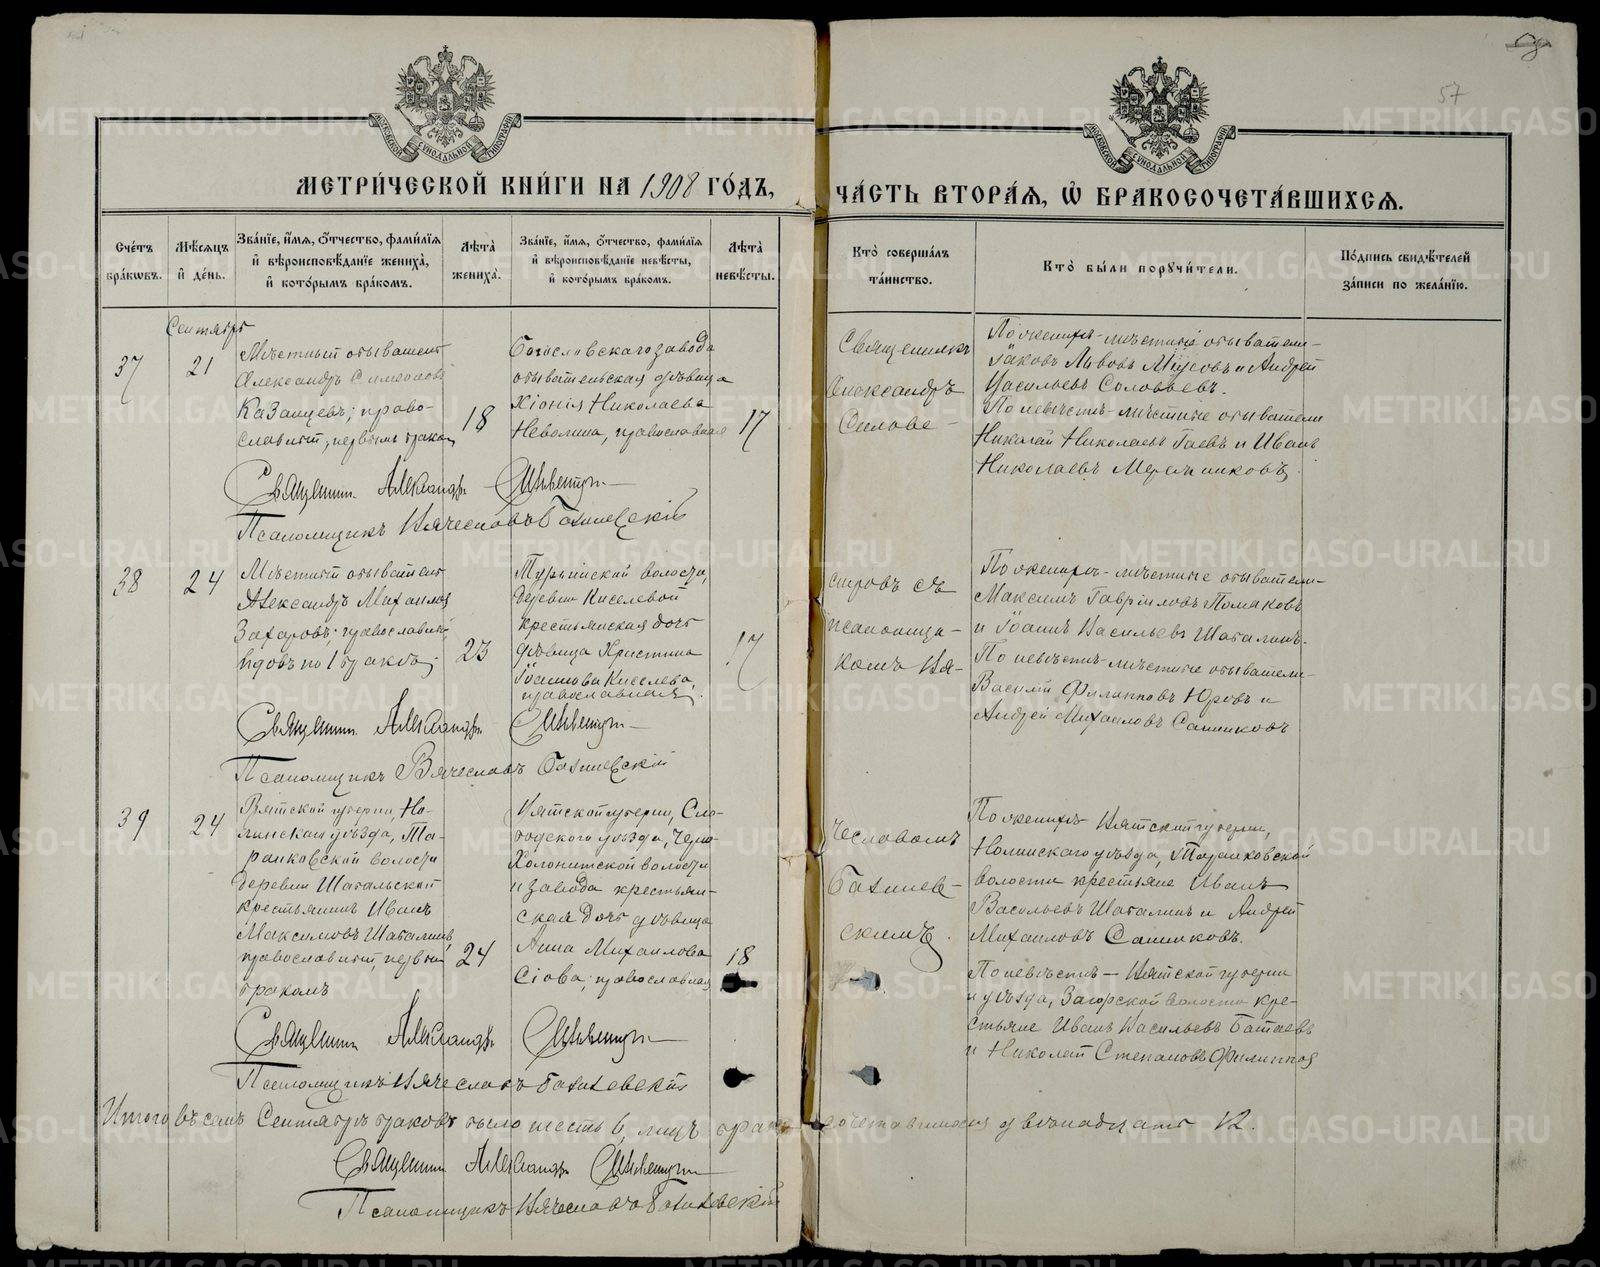 57
МОСКОВСКОЙ СѴНОДАЛЬНОЙ ТИПОГРАФІИ
МОСКОВСКОЙ СѴНОДАЛЬНОЙ ТИПОГРАФІИ
МЕТРИ́ЧЕСКОЙ КНИ́ГИ НА 1908 ГО́ДЪ,
ЧА́СТЬ ВТОРА́Я, Ѽ БРАКОСОЧЕТА́ВШИХСЯ.
Сче́тъ бра́кѡвъ.
Мѣ́сяцъ и҆ де́нь.
Зва́нїе, и҆́мя, ѻ҆́тчество, фами́лїя и҆ вѣроисповѣ́данїе жениха̀, и҆ кото́рымъ бра́комъ.
Лѣ́та жениха̀.
Зва́нїе, и҆́мя, ѻ҆́тчество, фами́лїя и҆ вѣроисповѣ́данїе невѣ́сты, и҆ кото́рымъ бра́комъ.
Лѣ́та невѣ́сты.
Кто̀ соверша́лъ та́инство.
Кто̀ бы́ли порꙋчи́тели.
По́дпись свидѣ́телей за́писи по жела́нїю.
Сентябрь
37
21
Мѣстный обыватель
Александръ Симеоновъ
Казанцевъ; право-
славный, первымъ бракомъ
18
Богословскаго завода
обывательская дѣвица
Хіонія Николаева
Неволина, православная
17
Священникъ
Александръ
Силове-
По женихѣ - мѣстные обыватели -
Іаковъ Львовъ и Андрей
Васильевъ Соловьевъ.
По невѣстѣ - мѣстные обыватели
Николай Николаевъ Гаевъ и Иванъ
Николаевъ Мерзляковъ.
Священникъ Александръ Сильвестровъ
Псаломщикъ Вячеславъ
38
24
Мѣстный обыватель
Александръ Михаиловъ
Захаровъ; православный
вдовъ по 1 бракѣ
23
Турьинской волости,
деревни Киселевой
крестьянская дочь
дѣвица Христина
Іоаннова Киселева,
православная.
17
стровъ съ
псаломщи-
комъ Вя-
По женихѣ - мѣстные обыватели -
Максимъ Гавриловъ
и Іоаннъ Васильевъ Шаталинъ.
По невѣстѣ - мѣстные обыватели -
Василій Филипповъ Юровъ и
Андрей Михаиловъ Санниковъ
Священникъ Александръ Сильвестровъ
Псаломщикъ Вячеславъ
39
24
Вятской губерніи, Но-
линскаго уѣзда, Та-
ранковской волости
деревни Шатальской
крестьянинъ Иванъ
Максимовъ Шаталинъ,
православный, первымъ
бракомъ
24
Вятской губерніи, Сло-
бодского уѣзда, Черно-
Холуницкой волости
и завода крестьян-
ская дочь дѣвица
Анна Михаилова
Сіова, православная
18
чеславомъ
скимъ.
По женихѣ - Вятской губерніи,
Нолинскаго уѣзда, Таранковской
волости крестьяне Иванъ
Васильевъ Шаталинъ и Андрей
Михаиловъ Санниковъ.
По невѣстѣ - Вятской губерніи
и уѣзда, Загорской волости кре-
стьяне Иванъ Васильевъ Батаевъ
и Николай Степановъ Филипповъ
Священникъ Александръ Сильвестровъ
Псаломщикъ Вячеславъ
Итого въ семъ Сентябрѣ браковъ было шесть 6, лицъ бракосочетавшихся двѣнадцать 12.
Священникъ Александръ Сильвестровъ
Псаломщикъ Вячеславъ
METRIKI.GASO-URAL.RU